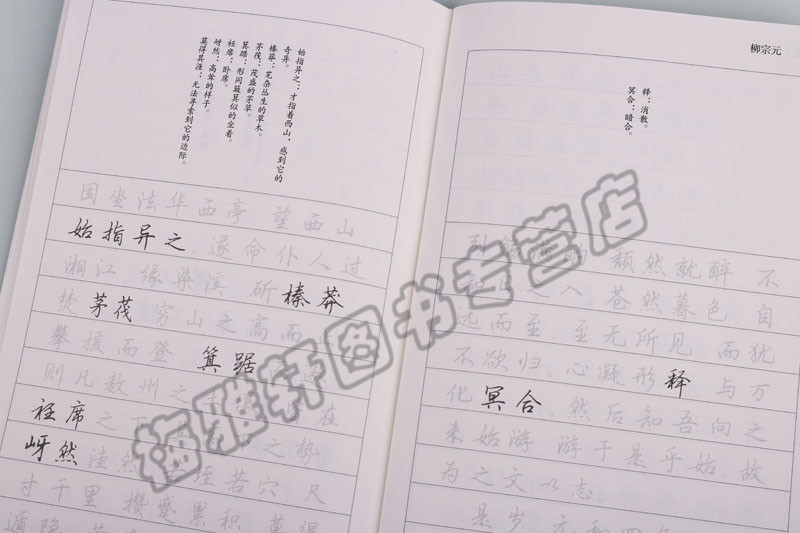 始指异之：才指着西山，感到它的
奇异。
榛莽：芜杂丛生的草木。
茅茷：茂盛的茅草。
箕踞：形同簸箕似的坐着。
衽席：卧席。
岈然：高耸的样子。
莫得其涯：无法寻索到它的边际。
因坐法华西亭，望西山
始指异之。遂命仆人过
湘江，缘染溪，斫榛莽
焚茅茷，穷山之高而
攀援而登，箕踞
则凡数州之 在
衽席之下。 之势
岈然洼然 若穴，尺
寸千里，攒蹙累积，莫得
柳宗元
释：消散。
冥合：暗合。
颓然就醉，不
知日之入。苍然暮色，自
远而至，至无所见，而犹
不欲归。心凝形释，与万
化冥合。然后知吾向之
未始游，游于是乎始。故
为之文以志。
是岁，元和四年
梅雅轩图书专营店